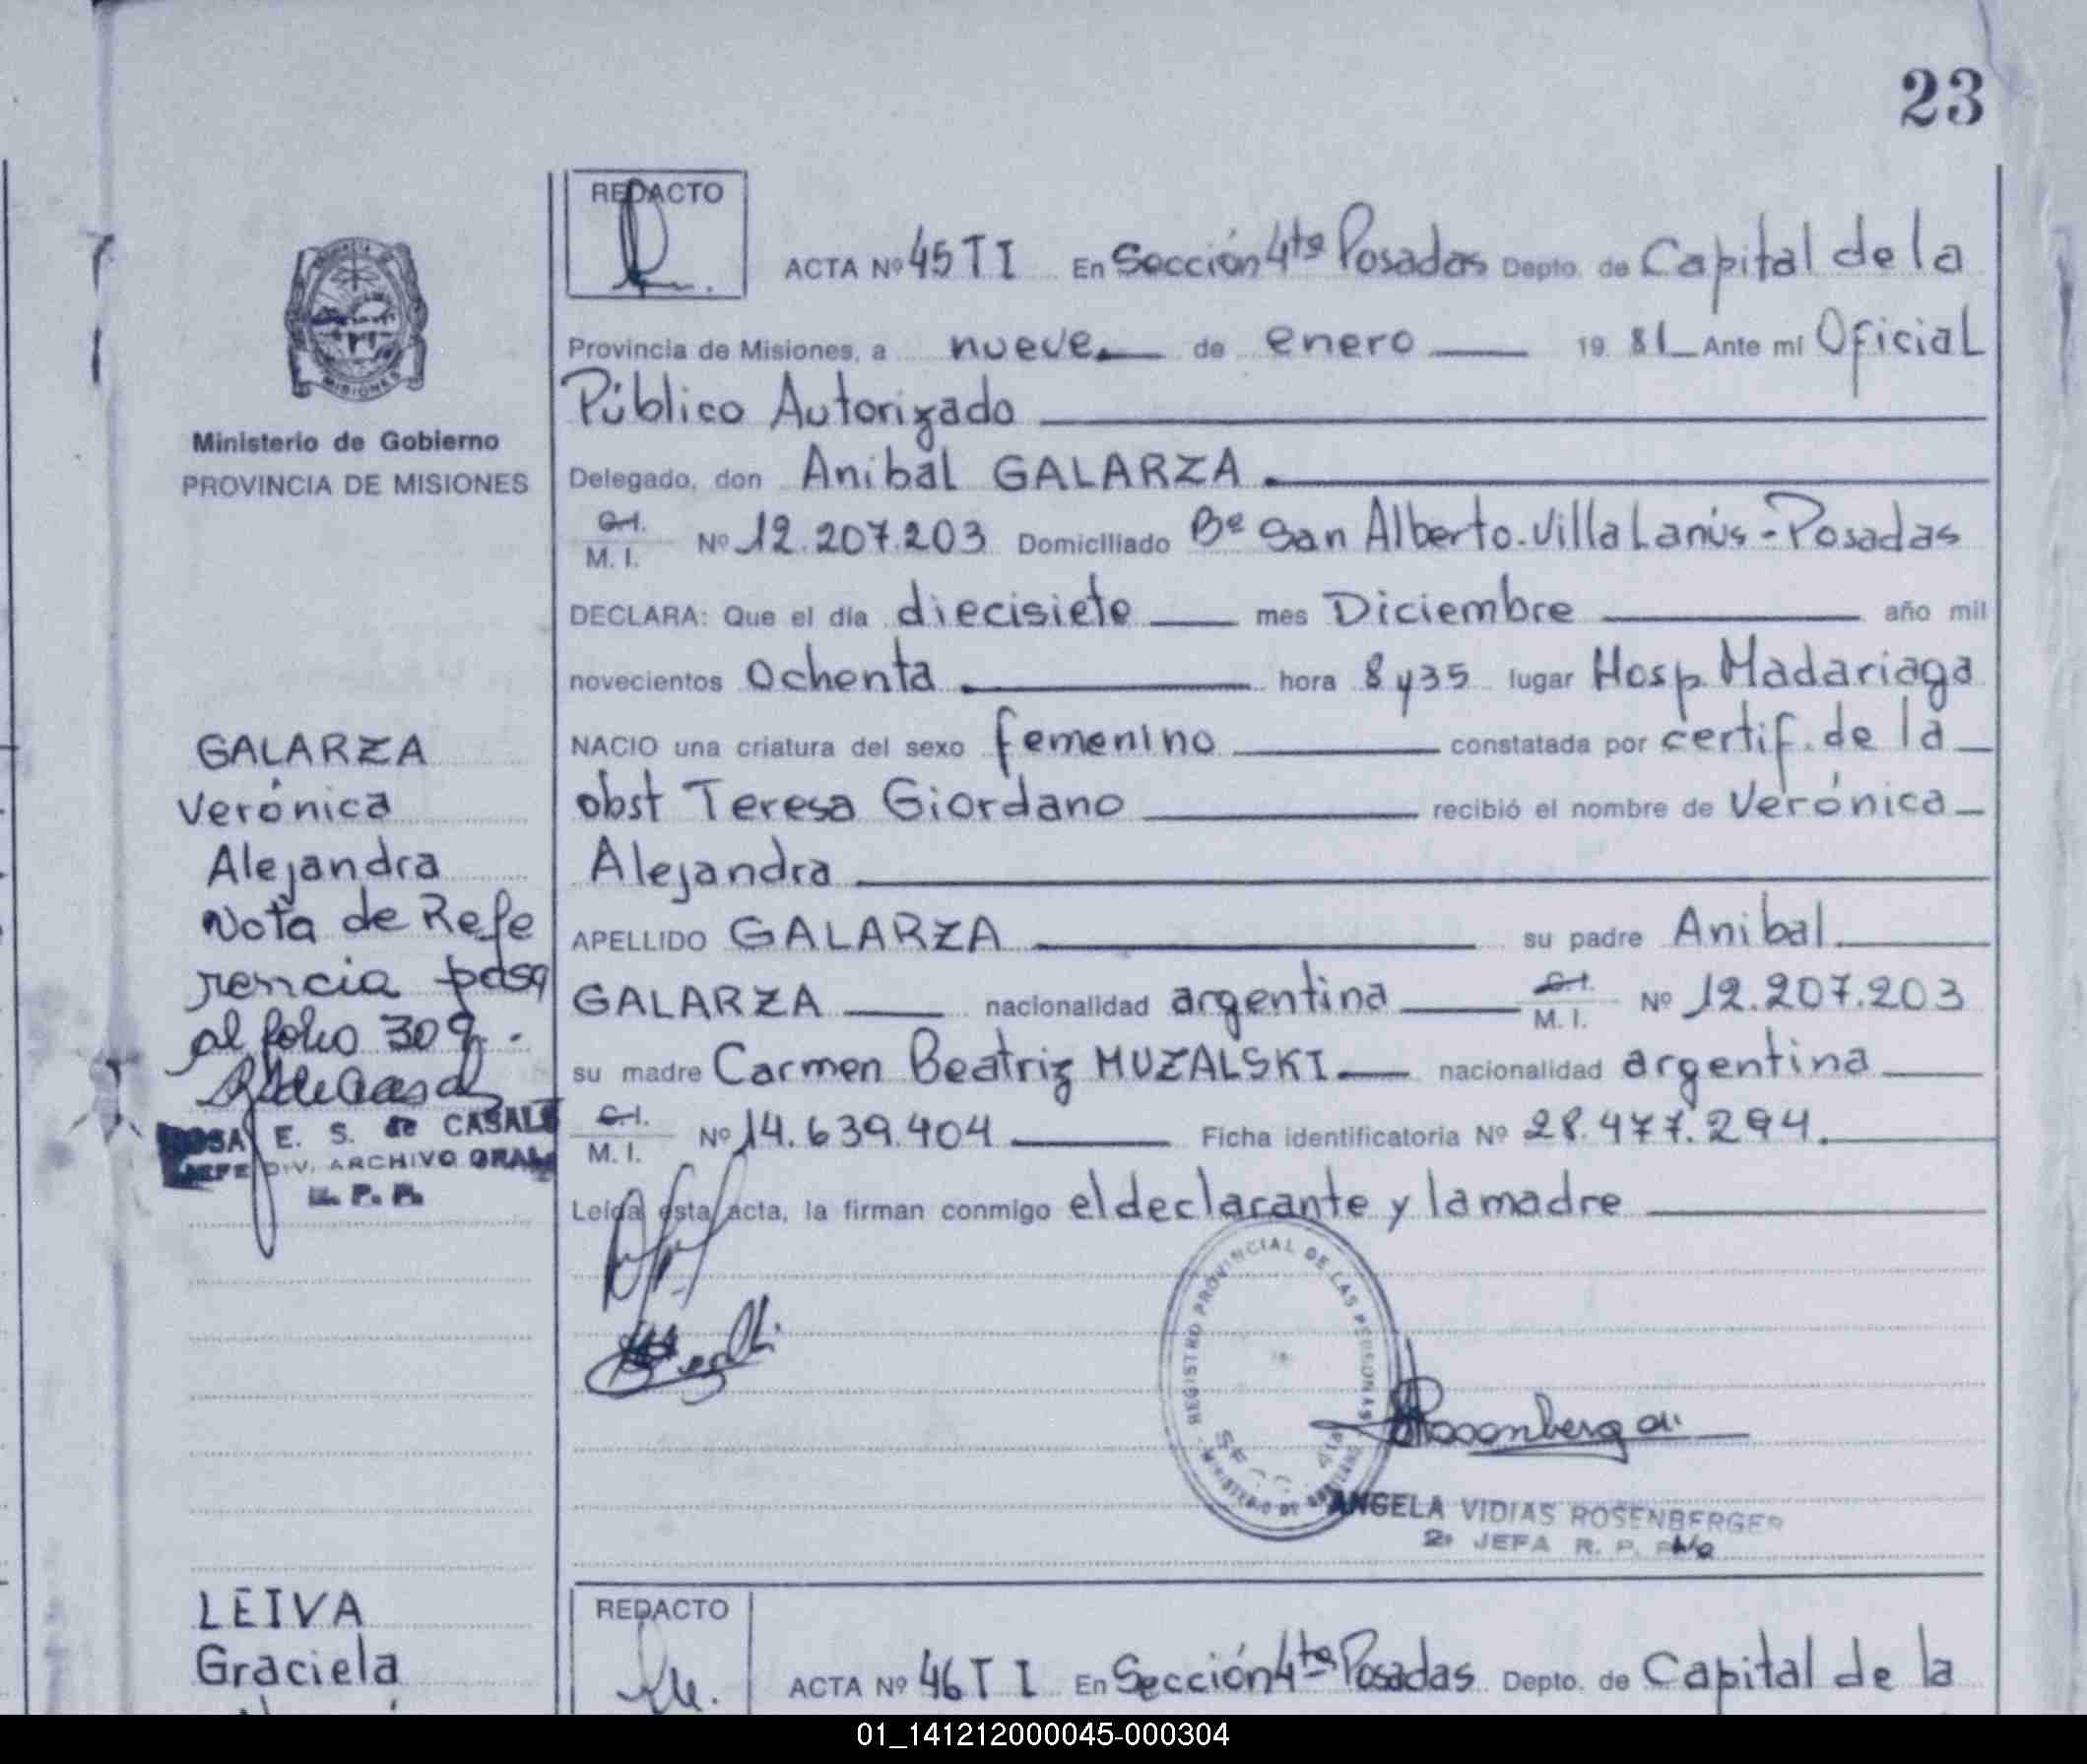 23
REDACTO
ACTA Nº 45 T I En Sección 4ta Posadas Depto. de Capital de la
Provincia de Misiones, a nueve de enero 19 81 Ante mi Oficial
Público Autorizado
Delegado, don Anibal GALARZA
C.I. M. I. Nº 12.207.203 Domiciliado Bº San Alberto-Villa Lanús-Posadas
DECLARA: Que el día diecisiete mes Diciembre año mil
novecientos Ochenta hora 8 y 35 lugar Hosp Madariaga
NACIO una criatura del sexo femenino constatada por certif. de la
obst Teresa Giordano recibió el nombre de Verónica
Alejandra
APELLIDO GALARZA su padre Anibal
GALARZA nacionalidad argentina C.I. M. I. Nº 12.207.203
su madre Carmen Beatriz MUZALSKI nacionalidad argentina
C.I. M. I. Nº 14.639.404 Ficha identificatoria Nº 28.477.294.
Leída esta acta, la firman conmigo el declarante y la madre
REGISTRO PROVINCIAL DE LAS PERSONAS
MINISTERIO DE GOBIERNO
SECC. 4ta
ANGELA VIDIAS ROSENBERGER
2º JEFA R. P.
MISIONES
Ministerio de Gobierno
PROVINCIA DE MISIONES
GALARZA
Verónica
Alejandra
Nota de Refe
rencia pasa
al folio 309.
ROSA E. S. de CASALE
JEFE DIV. ARCHIVO GRAL.
R. P. P.
LEIVA
Graciela
REDACTO
ACTA Nº 46 T I En Sección 4ta Posadas Depto. de Capital de la
01_141212000045-000304